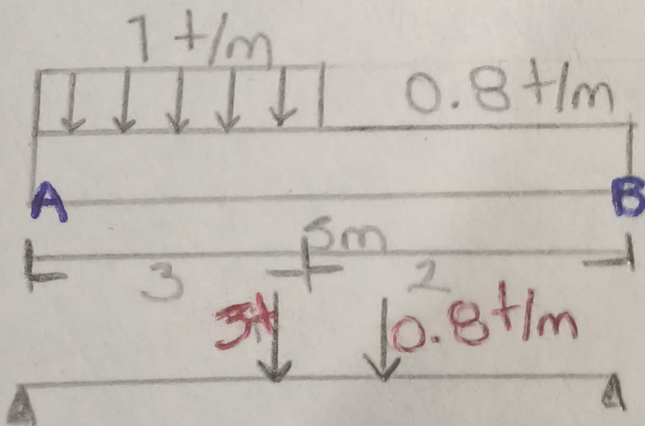 1 t/m
0.8 t/m
A B
5m
3 2
3t 0.8 t/m